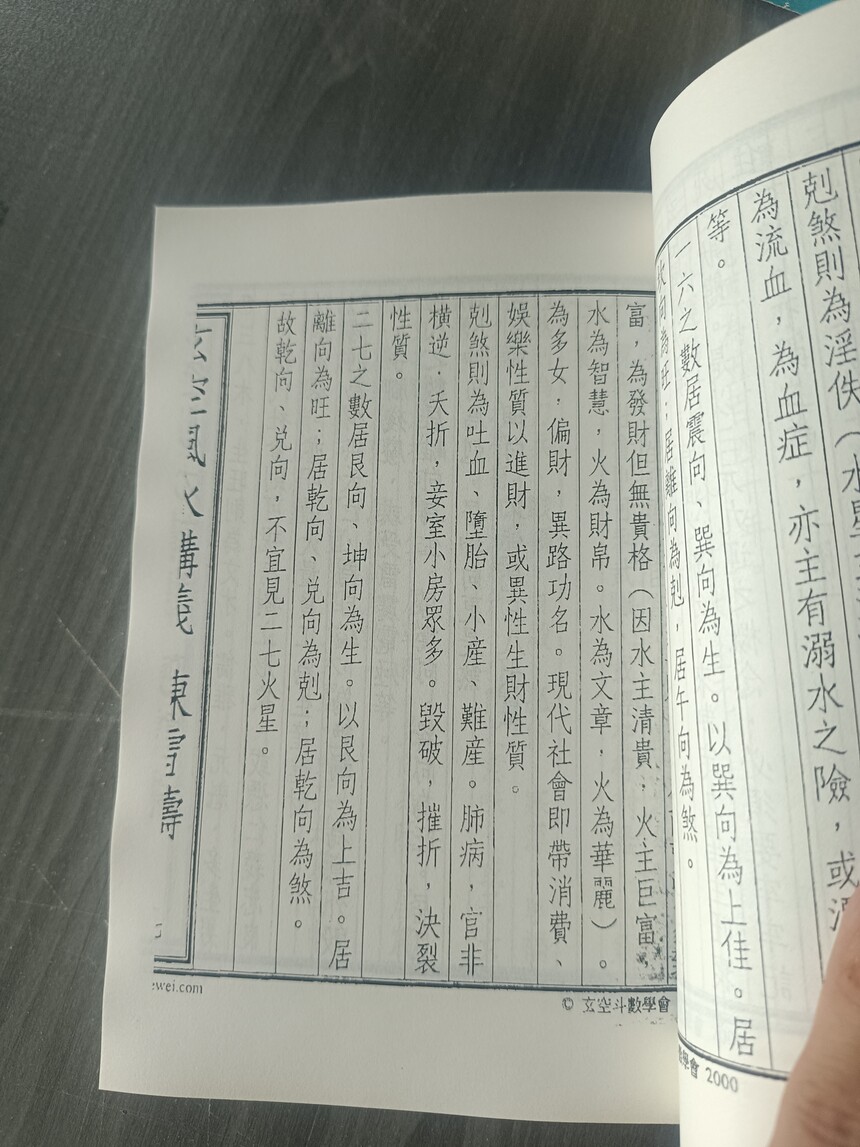 剋煞則為淫佚（水
為流血，為血症，亦主有溺水之險，或
等。
一六之數居震向、巽向為生。以巽向為上佳。居
坎向為旺；居離向為剋，居午向為煞。
© 玄空斗數學會
學會 2000
富，為發財但無貴格（因水主清貴，火主巨富，
水為智慧，火為財帛。水為文章，火為華麗）。
為多女，偏財，異路功名。現代社會即帶消費、
娛樂性質以進財，或異性生財性質。
剋煞則為吐血、墮胎、小產、難產。肺病，官非
橫逆．夭折，妾室小房眾多。毀破，摧折，決裂
性質。
二七之數居艮向、坤向為生。以艮向為上吉。居
離向為旺；居乾向、兌向為剋；居乾向為煞。
故乾向、兌向，不宜見二七火星。
玄空風水講義 陳雪濤
ewei.com